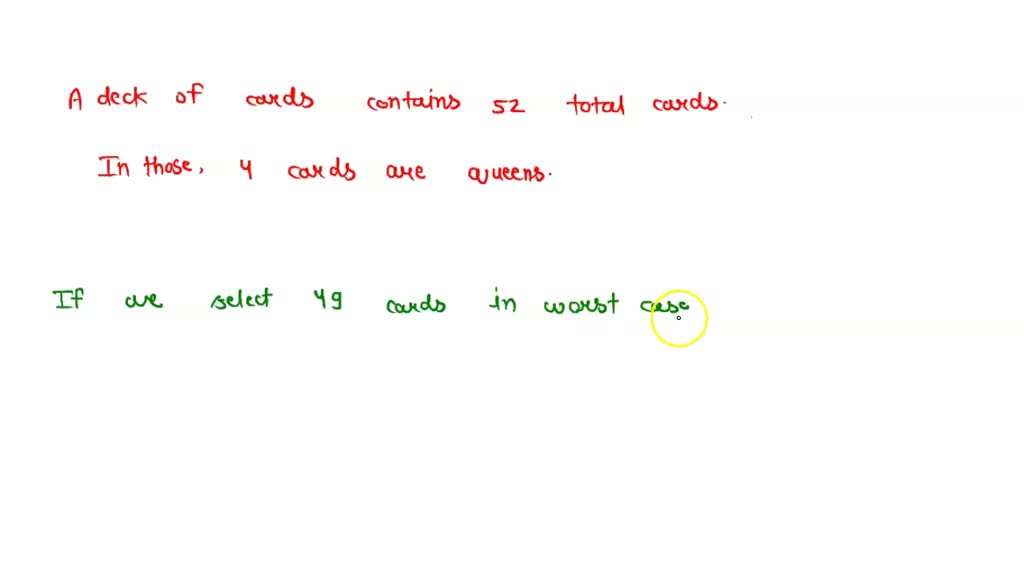 A deck of cards contains 52 total cards.
In those, 4 cards are queens.
If we select 49 cards in worst case